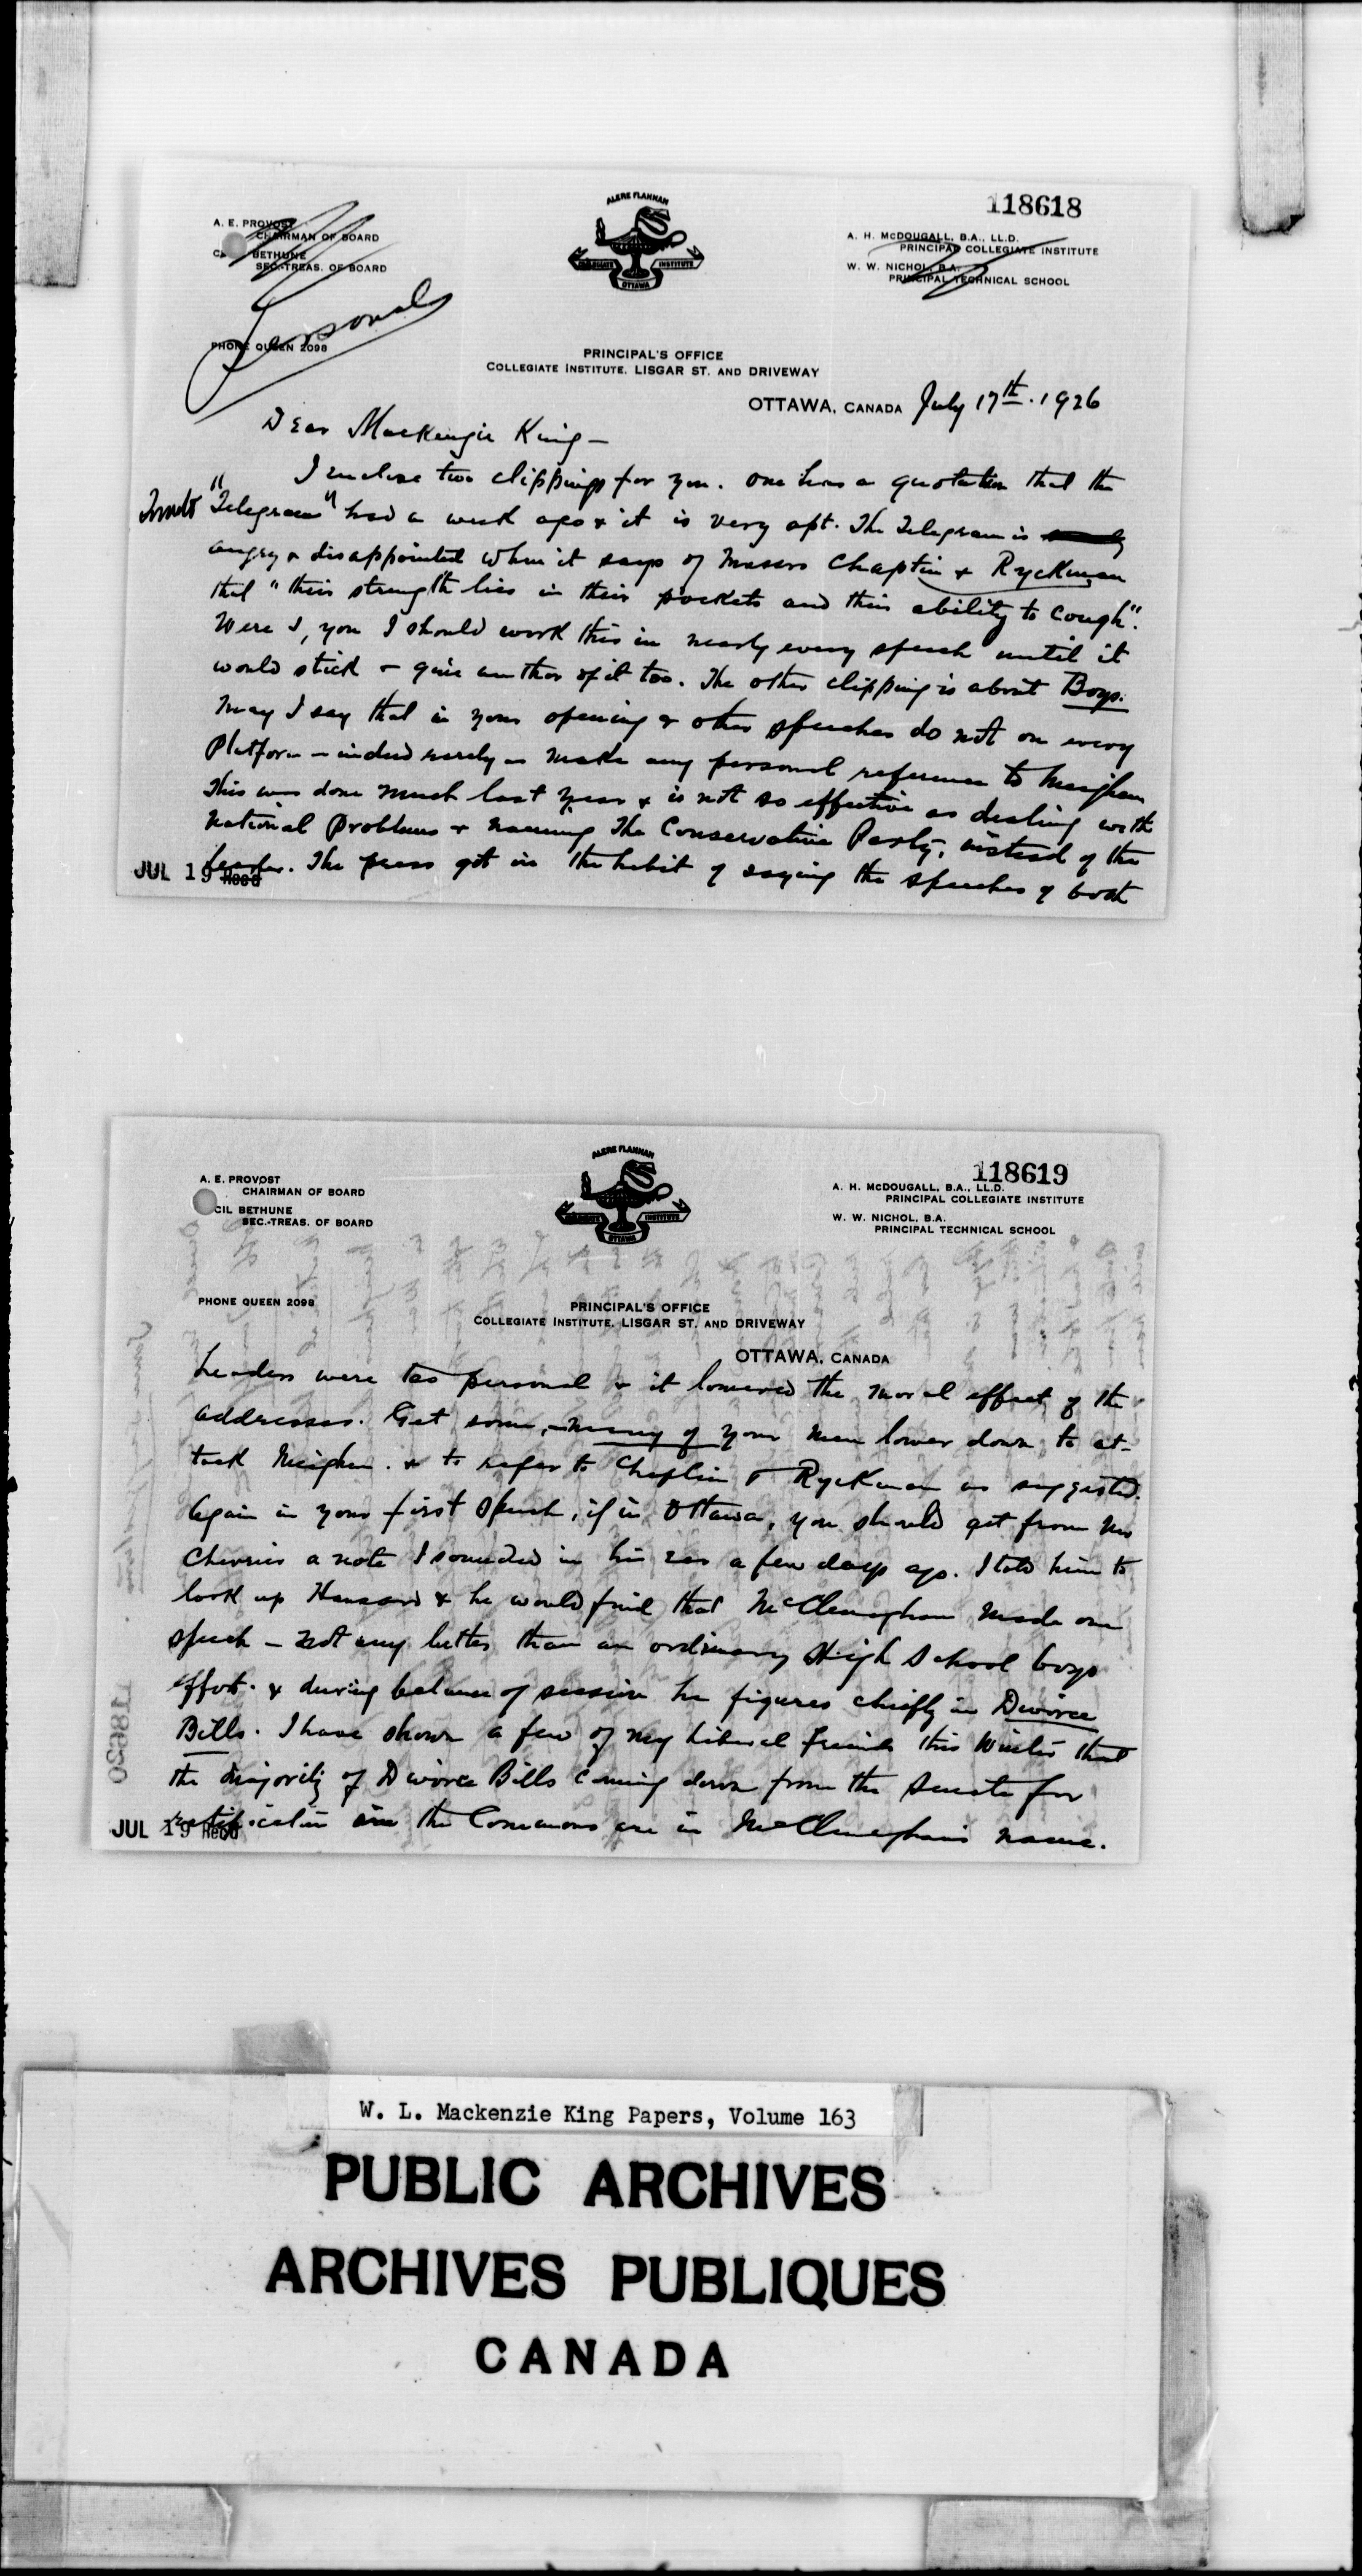 118618
A. E. PROVOST
CHAIRMAN OF BOARD
BETHUNE
SEC.-TREAS. OF BOARD
ALERE FLAMMAM
COLLEGIATE INSTITUTE
OTTAWA
A. H. McDOUGALL, B.A., LL.D.
PRINCIPAL COLLEGIATE INSTITUTE
W. W. NICHOL, B.A.
PRINCIPAL TECHNICAL SCHOOL
Personal
PHONE QUEEN 2098
PRINCIPAL'S OFFICE
COLLEGIATE INSTITUTE, LISGAR ST. AND DRIVEWAY
OTTAWA, CANADA July 17th. 1926
Dear Mackenzie King —
I enclose two clippings for you. One has a quotation that the
Toronto "Telegram" had a week ago & it is very apt. The Telegram is
angry & disappointed when it says of Messrs Chaplin & Ryckman
that "their strength lies in their pockets and their ability to cough".
Were I, you I should work this in nearly every speech until it
would stick & give author of it too. The other clipping is about Boys.
May I say that in your opening & other speeches do not on every
Platform — indeed rarely — make any personal reference to Meighen
This was done much last year & is not so effective as dealing with
National Problems & naming The Conservative Party, instead of the
leader. The press got in the habit of saying the speeches of both
JUL 19 Recd
118619
A. E. PROVOST
CHAIRMAN OF BOARD
CIL BETHUNE
SEC.-TREAS. OF BOARD
ALERE FLAMMAM
COLLEGIATE INSTITUTE
OTTAWA
A. H. McDOUGALL, B.A., LL.D.
PRINCIPAL COLLEGIATE INSTITUTE
W. W. NICHOL, B.A.
PRINCIPAL TECHNICAL SCHOOL
PHONE QUEEN 2098
PRINCIPAL'S OFFICE
COLLEGIATE INSTITUTE, LISGAR ST. AND DRIVEWAY
OTTAWA, CANADA
Leaders were too personal & it lowered the moral effect of the
addresses. Get some, — many of your men lower down to at-
tack Meighen. & to refer to Chaplin & Ryckman as suggested.
Again in your first speech, if in Ottawa, you should get from Mr
Chevrier a note I sounded in his ear a few days ago. I told him to
look up Hansard & he would find that McClenaghan made one
speech — not any better than an ordinary High School boys
effort. & during balance of session he figures chiefly in Divorce
Bills. I have shown a few of my Liberal Friends this Winter that
the majority of Divorce Bills coming down from the Senate for
ratification in the Commons are in McClenaghan's name.
JUL 19 Recd
118620
W. L. Mackenzie King Papers, Volume 163
PUBLIC ARCHIVES
ARCHIVES PUBLIQUES
CANADA